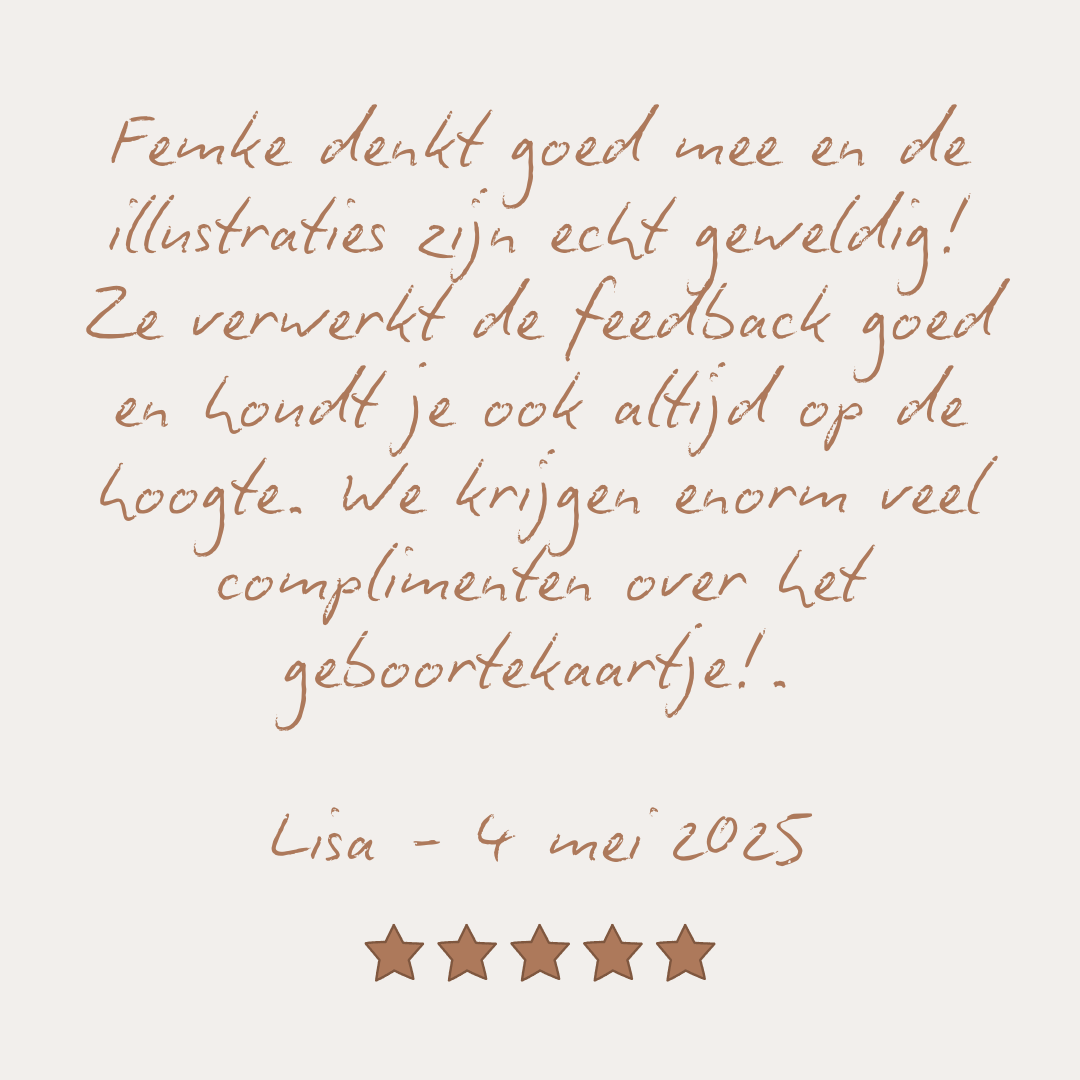 Femke denkt goed mee en de
illustraties zijn echt geweldig!
Ze verwerkt de feedback goed
en houdt je ook altijd op de
hoogte. We krijgen enorm veel
complimenten over het
geboortekaartje!.
Lisa - 4 mei 2025